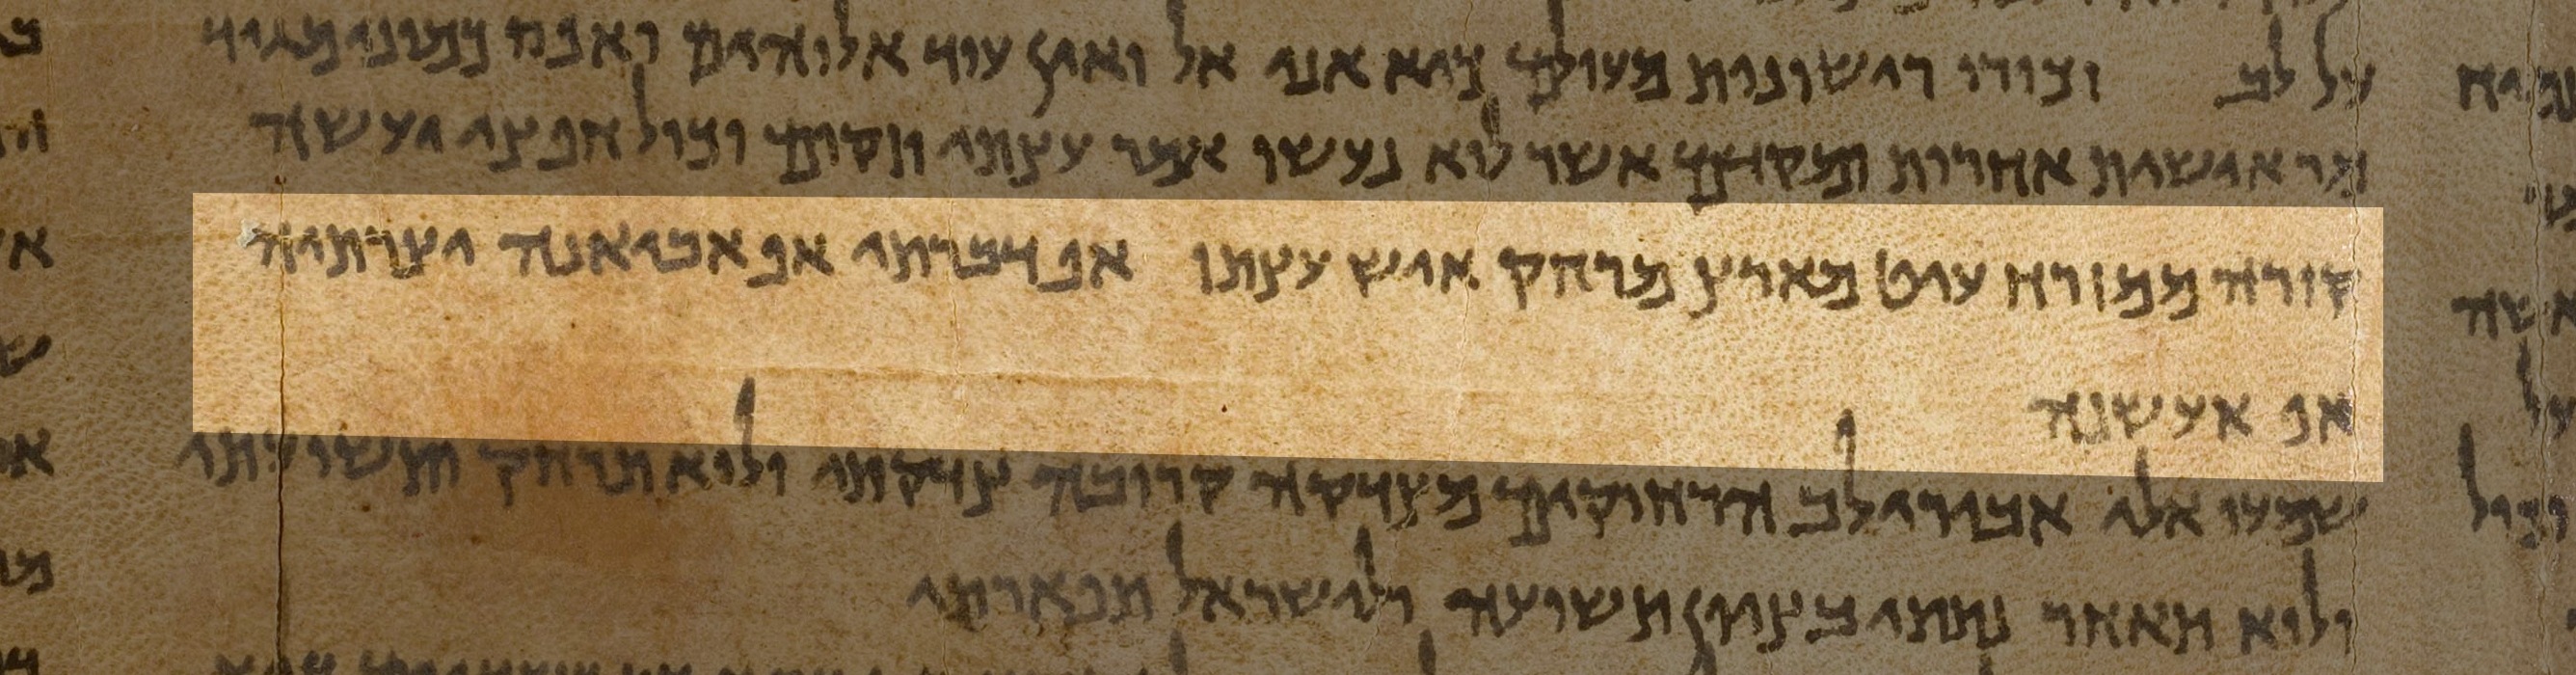 על לב זכורו רישונות מעולם כיא אני אל ואין עוד אלוהים ואפס כמוני מגיד
מראישית אחרית ומקדם אשר לוא נעשו אמר עצתי תקום וכול חפצי יעשה
קורה ממזרח עיט מארץ מרחק איש עצתו אף דברתי אף אביאנה יצרתיה
אף אעשנה
שמעו אלי אבירי לב הרחוקים מצדקה קרובה צדקתי ולוא תרחק ותשועתי
ולוא תאחר נתתי בציון תשועה ולישראל תפארתי